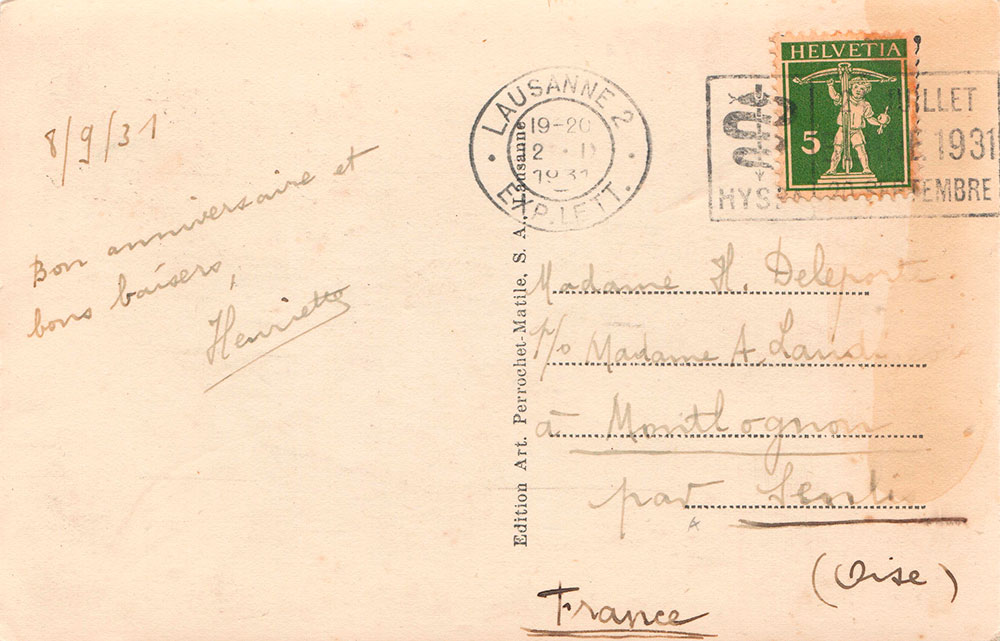 8/9/31
Bon anniversaire et
bons baisers,
Henriette
Edition Art. Perrochet-Matile, S. A., Lausanne
LAUSANNE 2
19-20
1931
EXP. LETT.
HELVETIA
5
JUILLET
1931
HYSPA SEPTEMBRE
Madame H. Deleporte
p/o Madame A.
à Montlognon
par Senlis
(Oise)
France